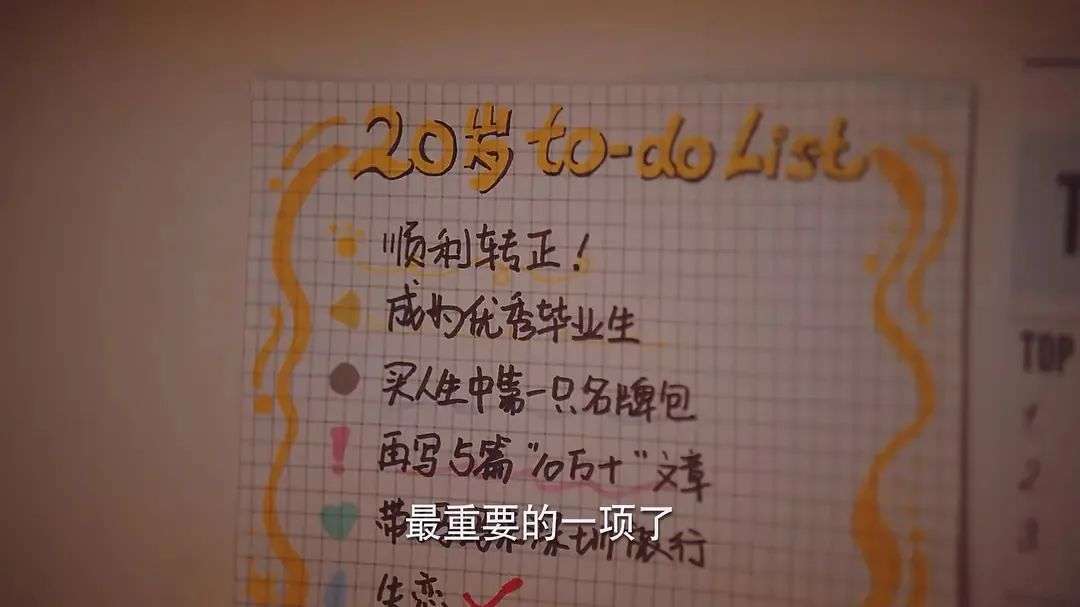 20岁 to-do List
顺利转正！
成为优秀毕业生
买人生中第一只名牌包
再写5篇“10万+”文章
带 旅行
最重要的一项了
失恋
T
TOP
1
2
3